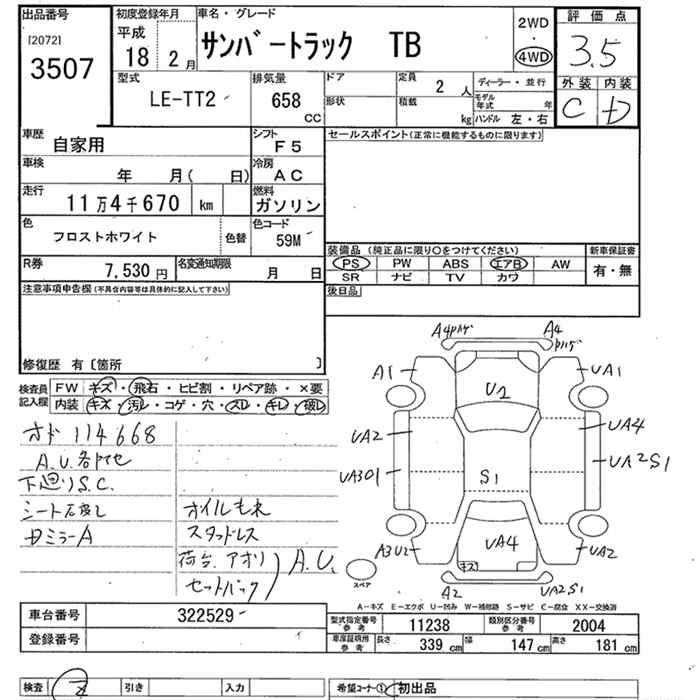 出品番号
[2072]
3507
初度登録年月
平成
18 2 月
車名・グレード
サンバートラック TB
2WD
4WD
評価点
3.5
外装 内装
C D
型式
LE-TT2
排気量
658
CC
ドア
形状
定員
2 人
積載
kg
ディーラー・並行
モデル年式 年
ハンドル 左・右
車歴
自家用
シフト
F5
セールスポイント(正常に機能するものに限ります)
車検
年 月( 日)
冷房
AC
走行
11万4千670 km
燃料
ガソリン
色
フロストホワイト
色替
色コード
59M
装備品 (純正品に限り〇をつけてください)
新車保証書
PS PW ABS エアB AW
有・無
SR ナビ TV カワ
R券
7,530 円
名変通知期限
月 日
後日品
注意事項申告欄(不具合内容等は具体的に記入して下さい)
修復歴 有〔箇所 〕
検査員
記入欄
FW キズ・飛石・ヒビ割・リペア跡・×要
内装 キズ・汚レ・コゲ・穴・スレ・キレ・破レ
オド 114668
A.U.各
下廻りS.C.
シート
ミラーA
オイルもれ
スタッドレス
荷台.アオリ
セットバック
A.U.
A4
A4
A1
UA1
U2
UA2
UA4
UA301
UA2S1
S1
UA4
キズ
A3U2
UA2
A2
UA2S1
スペア
A-キズ E-エクボ U-凹み W-補修跡 S-サビ C-腐食 XX-交換済
車台番号
322529
登録番号
型式指定番号
参考
11238
類別区分番号
参考
2004
車庫証明用
参考
長さ 339 cm 幅 147 cm 高さ 181 cm
検査
引き
入力
希望コーナー① 初出品